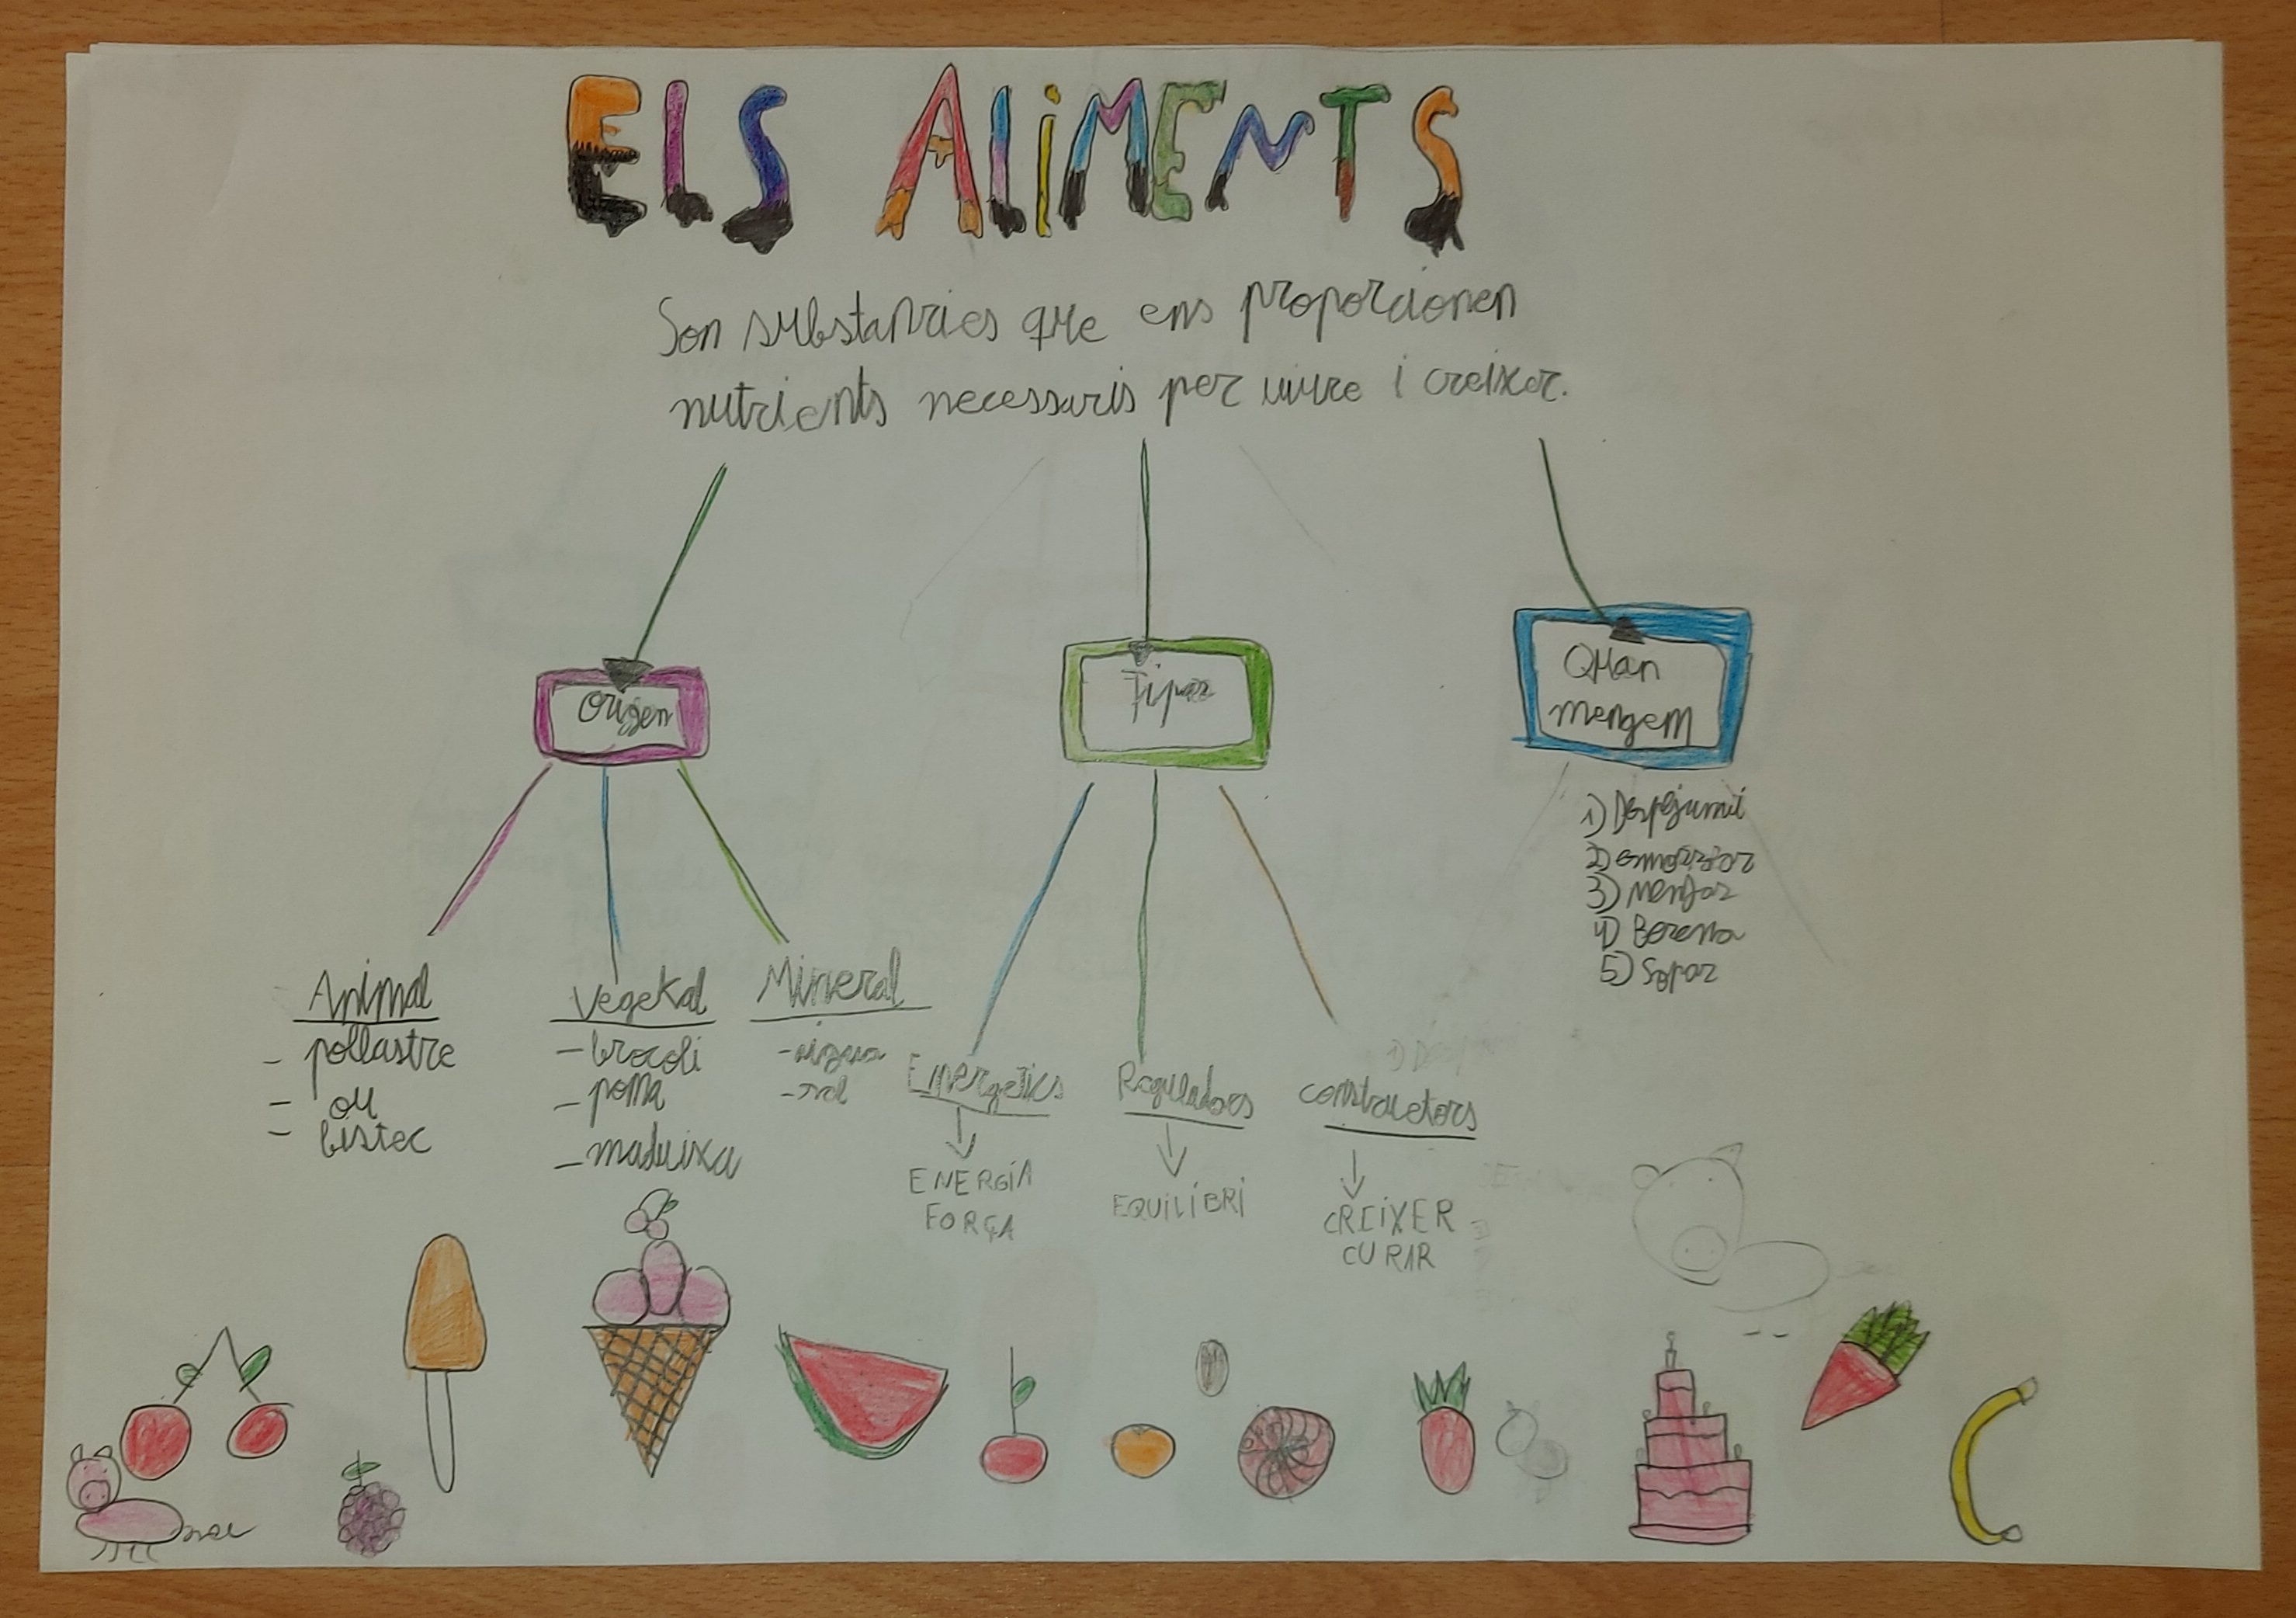 ELS ALiMENTS
Son substancies que ens proporcionen
nutrients necessaris per viure i creixer.
Origen
Tipus
Quan
mengem
1) Desdejuni
2) esmorzar
3) Menjar
4) Berena
5) Sopar
Animal
- pollastre
- ou
- bistec
Vegetal
- brocoli
- poma
- maduixa
Mineral
- aigua
- sal
Energetics
ENERGÍA
FORÇA
Reguladors
EQUiLÍBRi
constructors
CREiXER
CURAR